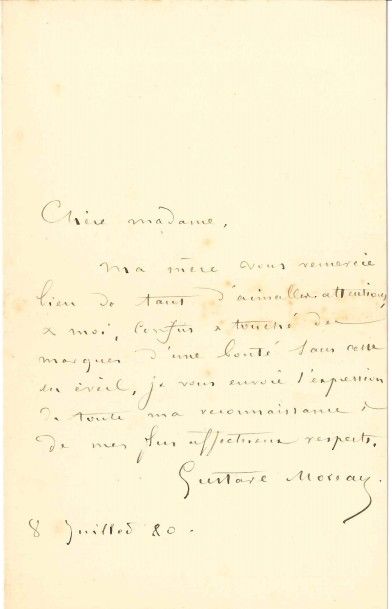 Chère madame,
ma mère vous remercie
bien de tant d'aimables attentions
& moi, confus & touché des
marques d'une bonté sans cesse
en éveil, je vous envoie l'expression
de toute ma reconnaissance &
de mes plus affectueux respects.
Gustave Moreau.
8 Juillet 80.